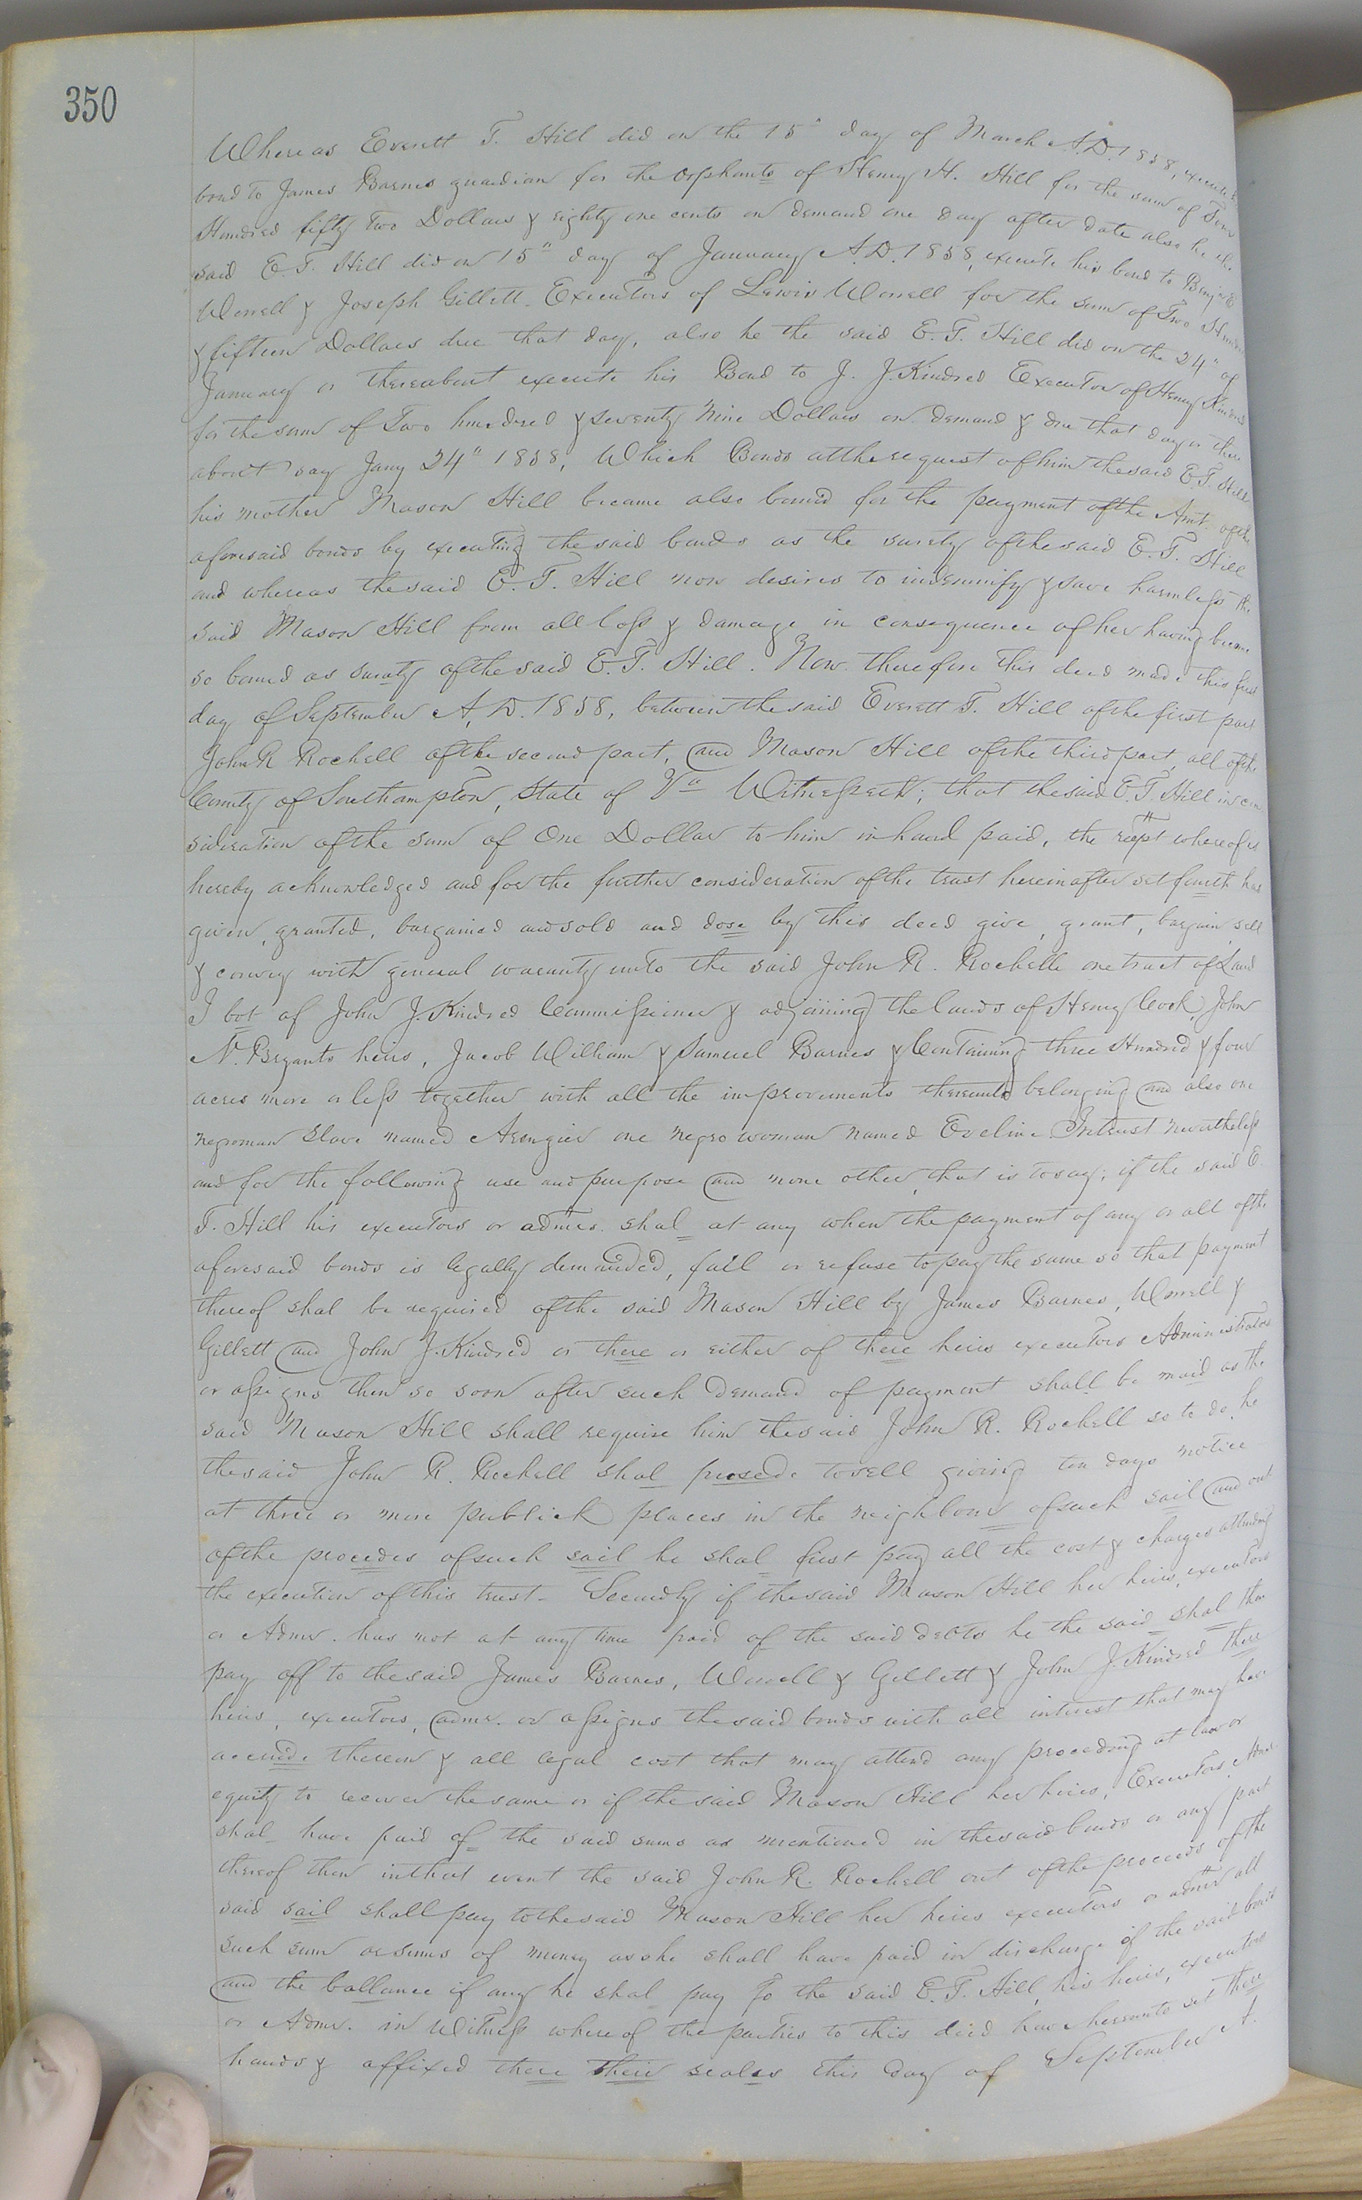 350
Whereas Everett T. Hill did on the 15" day of March A.D. 1858, execute
bond to James Barnes guardian for the orphants of Henry H. Hill for the sum of
Hundred fifty two Dollars & eighty one cents on demand one day after date also he the
said E T. Hill did on 15" day of January A.D. 1858, execute his bond to Benj E
Worrell & Joseph Gillett Executors of Lewis Worrell for the sum of Two Hundred
& fifteen Dollars due that day, also he the said E. T. Hill did on the 24" of
January or thereabout execute his Bond to J. J. Kindred Executor of Henry
for the sum of Two hundred & seventy nine Dollars on demand & due that day or there
about say Jany 24" 1858, Which Bonds at the request of him the said E T. Hill
his mother Mason Hill became also bound for the payment of the Amt of the
aforesaid bonds by executing the said bonds as the surety of the said E. T. Hill
and whereas the said E. T. Hill now desires to indemnify & save harmless the
said Mason Hill from all loss & damage in consequence of her having become
so bound as suraty of the said E. T. Hill. Now therefore this deed made this first
day of September A,D. 1858, between the said Everett T. Hill of the first part
John R Rochell of the second part, and Mason Hill of the third part, all of the
County of Southampton, State of Va Witnesseth; that the said E. T. Hill in con
sideration of the sum of One Dollar to him in hand paid, the recept whereof is
hereby acknowledged and for the further consideration of the trust hereinafter set fourth has
given, granted, bargained and sold and dose by this deed give, grant, bargain sell
& convey with general waranty unto the said John R. Rochelle one tract of Land
I bot of John J. Kindred Commissioner & adjoining the lands of Henry Cook, John
N. Bryants heirs, Jacob William & Samuel Barnes & Containing three Hundred & four
acres more or less together with all the improvements thereunto belonging and also one
negroman slave named one negro woman named Eveline Intrust nevertheless
and for the following use and purpose and none other, that is to say; if the said E.
T. Hill his executors or admrs. shal at any when the payment of any or all of the
aforesaid bonds is legally demanded, fail or refuse to pay the same so that payment
thereof shal be required of the said Mason Hill by James Barnes, Worrell &
Gillett and John J. Kindred or there or either of there heirs executors Administrators
or assigns then so soon after such demand of payment shall be maid as the
said Mason Hill shall require him the said John R. Rochell so to do, he
the said John R. Rochell shal prosede to sell giving ten days notice
at three or more publick places in the neighbour of such sail and out
of the procedes of such sail he shal first pay all the cost & charges attending
the execution of this trust - Secondly if the said Mason Hill her heirs, executors
or Admr. has not at any time paid of the said debts he the said shal then
pay off to the said James Barnes, Worrell & Gillett & John J. Kindred there
heirs, executors, admr. or assigns the said bonds with all intrust that may have
accrude thereon & all legal cost that may attend any proceeding at law or
equity to recover the same or if the said Mason Hill her heirs, Executors Admr
shal have paid of the said sums as mentioned in the said bonds or any part
thereof then in that event the said John R. Rochell out of the proceeds of the
said sail shall pay to the said Mason Hill her heirs executors or admr all
such sum or sums of money as she shall have paid in discharge of the said bonds
and the ballance if any he shal pay to the said E. T. Hill, his heirs, executors
or Admr. in Witness whereof the parties to this deed have hereunto set there
hands & affixed there their seales this day of September A.